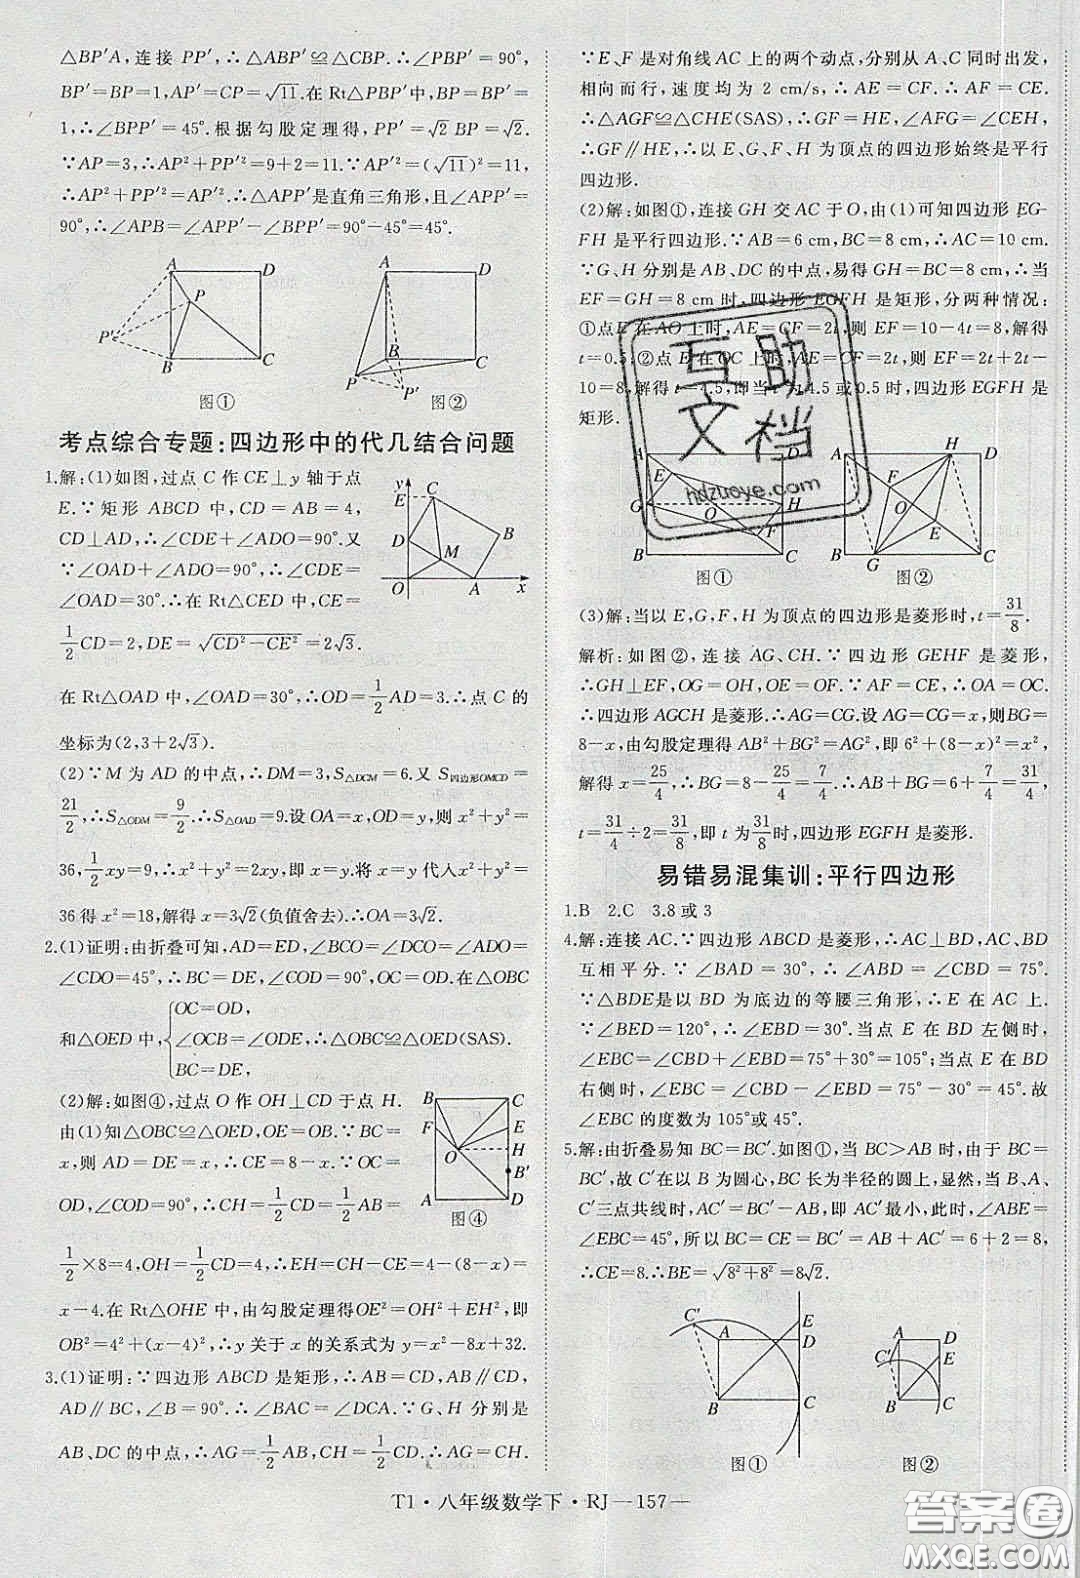 △BP′A,连接 PP′,∴△ABP′≌△CBP.∴∠PBP′=90°,
BP′=BP=1,AP′=CP=√11.在 Rt△PBP′中,BP′=BP=
1,∴∠BPP′=45°.根据勾股定理得,PP′=√2 BP=√2.
∵AP=3,∴AP²+PP′²=9+2=11.∵AP′²=(√11)²=11,
∴AP²+PP′²=AP′².∴△APP′是直角三角形,且∠APP′=
90°,∴∠APB=∠APP′−∠BPP′=90°−45°=45°.
A D P P′ B C
图①
A D B C P P′
图②
考点综合专题:四边形中的代几结合问题
1.解:(1)如图,过点 C 作 CE⊥y 轴于点
E.∵矩形 ABCD 中,CD=AB=4,
CD⊥AD,∴∠CDE+∠ADO=90°.又
∵∠OAD+∠ADO=90°,∴∠CDE=
∠OAD=30°.∴在 Rt△CED 中,CE=
1/2 CD=2,DE=√(CD²−CE²)=2√3.
y E C B D M O A x
在 Rt△OAD 中,∠OAD=30°,∴OD=1/2 AD=3.∴点 C 的
坐标为(2,3+2√3).
(2)∵M 为 AD 的中点,∴DM=3,S△DCM=6.又 S四边形OMCD=
21/2,∴S△ODM=9/2.∴S△OAD=9.设 OA=x,OD=y,则 x²+y²=
36,1/2 xy=9,∴x²+y²=2xy,即 x=y.将 x=y 代入x²+y²=
36 得 x²=18,解得 x=3√2(负值舍去).∴OA=3√2.
2.(1)证明:由折叠可知,AD=ED,∠BCO=∠DCO=∠ADO=
∠CDO=45°,∴BC=DE,∠COD=90°,OC=OD.在△OBC
和△OED 中,{OC=OD,
∠OCB=∠ODE,∴△OBC≌△OED(SAS).
BC=DE,
(2)解:如图④,过点 O 作 OH⊥CD 于点 H.
由(1)知△OBC≌△OED,OE=OB.∵BC=
x,则 AD=DE=x,∴CE=8−x.∵OC=
OD,∠COD=90°,∴CH=1/2 CD=1/2 AB=
B C F E O H B′ A D
图④
1/2×8=4,OH=1/2 CD=4,∴EH=CH−CE=4−(8−x)=
x−4.在 Rt△OHE 中,由勾股定理得OE²=OH²+EH²,即
OB²=4²+(x−4)²,∴y 关于 x 的关系式为 y=x²−8x+32.
3.(1)证明:∵四边形 ABCD 是矩形,∴AB=CD,AB∥CD,
AD∥BC,∠B=90°,∴∠BCA=∠DCA.∵G、H 分别是
AB、DC 的中点,∴AG=1/2 AB,CH=1/2 CD.∴AG=CH.
∵E、F 是对角线 AC 上的两个动点,分别从 A、C 同时出发,
相向而行,速度均为 2 cm/s,∴AE=CF.∴AF=CE.
∴△AGF≌△CHE(SAS),∴GF=HE,∠AFG=∠CEH,
∴GF∥HE,∴以 E、G、F、H 为顶点的四边形始终是平行
四边形.
(2)解:如图①,连接 GH 交 AC 于 O,由(1)可知四边形 EG-
FH 是平行四边形.∵AB=6 cm,BC=8 cm,∴AC=10 cm.
∵G、H 分别是 AB、DC 的中点,易得 GH=BC=8 cm,∴当
EF=GH=8 cm 时,四边形 EGFH 是矩形,分两种情况:
①点E 在 AO 上时,AE=CF=2t,则 EF=10−4t=8,解得
t=0.5;②点 E 在 OC 上时,AE=CF=2t,则 EF=2t+2t−
10=8,解得 t=4.5,即当 t 为 4.5 或0.5 时,四边形 EGFH 是
矩形.
互助
文档
hdzuoye.com
A D E G O H F B C
图①
A H D F O E B G C
图②
(3)解:当以 E,G,F,H 为顶点的四边形是菱形时,t=31/8.
解析:如图②,连接 AG、CH.∵四边形 GEHF 是菱形,
∴GH⊥EF,OG=OH,OE=OF.∵AF=CE,∴OA=OC.
∴四边形 AGCH 是菱形.∴AG=CG.设 AG=CG=x,则BG=
8−x,由勾股定理得 AB²+BG²=AG²,即 6²+(8−x)²=x²,
解得 x=25/4,∴BG=8−25/4=7/4.∴AB+BG=6+7/4=31/4,
t=31/4÷2=31/8,即 t 为31/8时,四边形 EGFH 是菱形.
易错易混集训:平行四边形
1.B 2.C 3.8 或 3
4.解:连接 AC.∵四边形 ABCD 是菱形,∴AC⊥BD,AC、BD
互相平分.∵∠BAD=30°,∴∠ABD=∠CBD=75°.
∵△BDE是以 BD 为底边的等腰三角形,∴E 在 AC 上.
∵∠BED=120°,∴∠EBD=30°.当点 E 在 BD 左侧时,
∠EBC=∠CBD+∠EBD=75°+30°=105°;当点 E 在 BD
右侧时,∠EBC=∠CBD−∠EBD=75°−30°=45°.故
∠EBC 的度数为 105°或 45°.
5.解:由折叠易知 BC=BC′.如图①,当 BC>AB 时,由于 BC=
BC′,故 C′在以 B 为圆心,BC 长为半径的圆上,显然,当 B、A、
C′三点共线时,AC′=BC′−AB,即 AC′最小,此时,∠ABE=
∠EBC=45°,所以 BC=CE=BC′=AB+AC′=6+2=8,
∴CE=8.∴BE=√(8²+8²)=8√2.
C′ A E D B C
图①
A D C′ E B C
图②
T1·八年级数学下·RJ—157—
答案圈
MXQE.COM